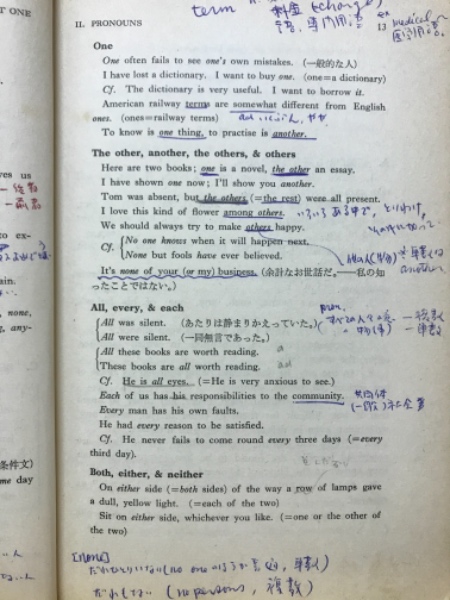 T ONE
II. PRONOUNS
term
13
medical
One
One often fails to see one's own mistakes. (一般的な人)
I have lost a dictionary. I want to buy one. (one=a dictionary)
Cf. The dictionary is very useful. I want to borrow it.
American railway terms are somewhat different from English
ones. (ones=railway terms)
To know is one thing, to practise is another.
The other, another, the others, & others
Here are two books; one is a novel, the other an essay.
I have shown one now; I'll show you another.
Tom was absent, but the others (=the rest) were all present.
I love this kind of flower among others.
We should always try to make others happy.
Cf. {No one knows when it will happen next.
None but fools have ever believed.
It's none of your (or my) business. (余計なお世話だ。——私の知
ったことではない。)
All, every, & each
{All was silent. (あたりは静まりかえっていた。)
All were silent. (一同無言であった。)
{All these books are worth reading.
These books are all worth reading.
Cf. He is all eyes. (=He is very anxious to see.)
Each of us has his responsibilities to the community.
Every man has his own faults.
He had every reason to be satisfied.
Cf. He never fails to come round every three days (=every
third day).
Both, either, & neither
On either side (=both sides) of the way a row of lamps gave
a dull, yellow light. (=each of the two)
Sit on either side, whichever you like. (=one or the other of
the two)
[none]
だれもない (no persons, 複数)
ves us
to ex-
ain.
, none,
g, any-
条件文)
me day